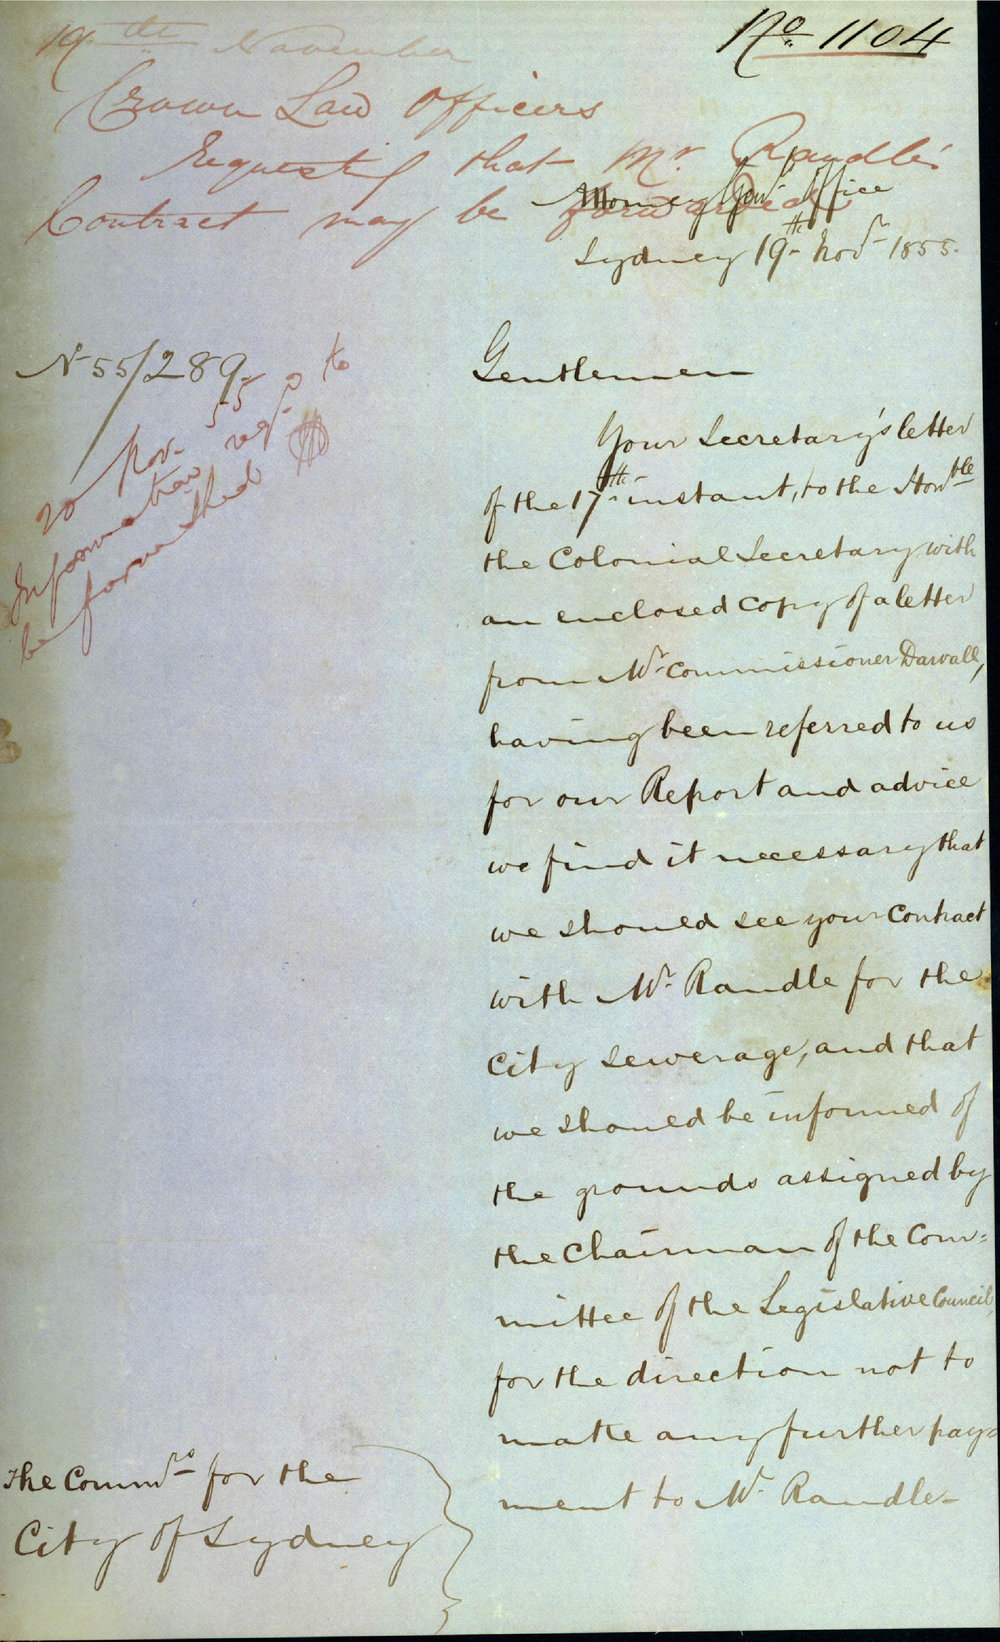 19th November
No. 1104
Crown Law Officers
requesting that Mr Randle's
Contract may be forwarded
Attorney Genl's Office
Sydney 19th Novr 1855.
No 55/289.
20 Nov. 55
Information reqd to
be forwarded
Gentlemen
Your Secretary's letter
of the 17th instant, to the Honble
the Colonial Secretary with
an enclosed copy of a letter
from Mr Commissioner Darvall,
having been referred to us
for our Report and advice
we find it necessary that
we should see your Contract
with Mr Randle for the
City Sewerage, and that
we should be informed of
the grounds assigned by
the Chairman of the Com=
mittee of the Legislative Council,
for the direction not to
make any further pay=
ment to Mr Randle—
The Commrs for the
City of Sydney